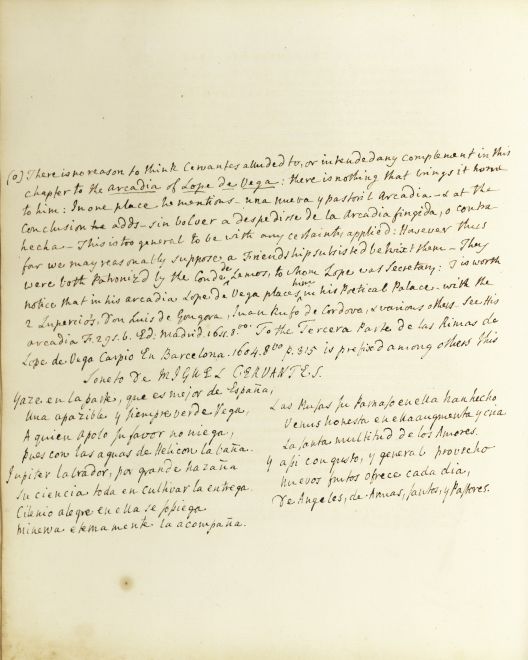 (o) There is no reason to think Cervantes alluded to, or intended any complement in this
chapter to the Arcadia of Lope de Vega: there is nothing that brings it home
to him: In one place he mentions - una nueva y pastoril Arcadia - & at the
Conclusion he adds - sin bolver a despedirse de la Arcadia fingida, o contra
hecha - This is too general to be with any certainty applied: However thus
far we may reasonably suppose, a Friendship subsisted betwixt them - They
were both Patroniz'd by the Conde de Lemos, to whom Lope was Secretary: Tis worth
notice that in his Arcadia Lope de Vega places him in his Poetical Palace - with the
2 Lupercio's, Don Luis de Gongora, Juan Rufo de Cordova, & various others. See His
Arcadia F. 295. b. Ed: Madrid. 1611. 8vo. To the Tercera Parte de las Rimas de
Lope de Vega Carpio En Barcelona. 1604. 8vo p. 315 is prefixed among others This
Soneto De MIGUEL CERVANTES.
Yaze en la parte, que es mejor de España,
Una apazible y siempre verde Vega,
A quien Apolo su favor no niega,
Pues con las aguas de Helicon la baña.
Jupiter labrador, por grande hazaña
Su ciencia toda en cultivar la entrega
Cilenio alegre en ella se sosiega
Minerva eternamente la acompaña.
Las Musas su Parnaso en ella han hecho
Venus honesta en ella augmenta y cria
La santa multitud de los Amores.
Y assi con gusto, y general provecho
Nuevos frutos ofrece cada dia,
De Angeles, de Armas, santos, y Pastores.